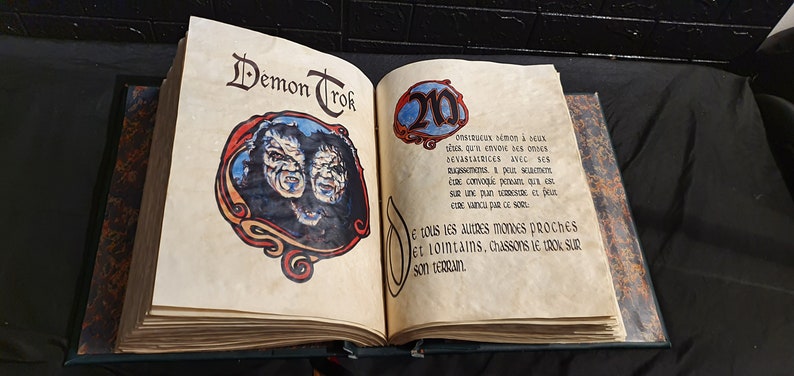 Démon Trok
Monstrueux démon à deux
têtes, qu'il envoie des ondes
dévastatrices avec ses
rugissements. Il peut seulement
être convoqué pendant qu'il est
sur une plan terrestre et peut
être vaincu par ce sort:
De tous les autres mondes proches
et lointains, chassons le Trok sur
son terrain.